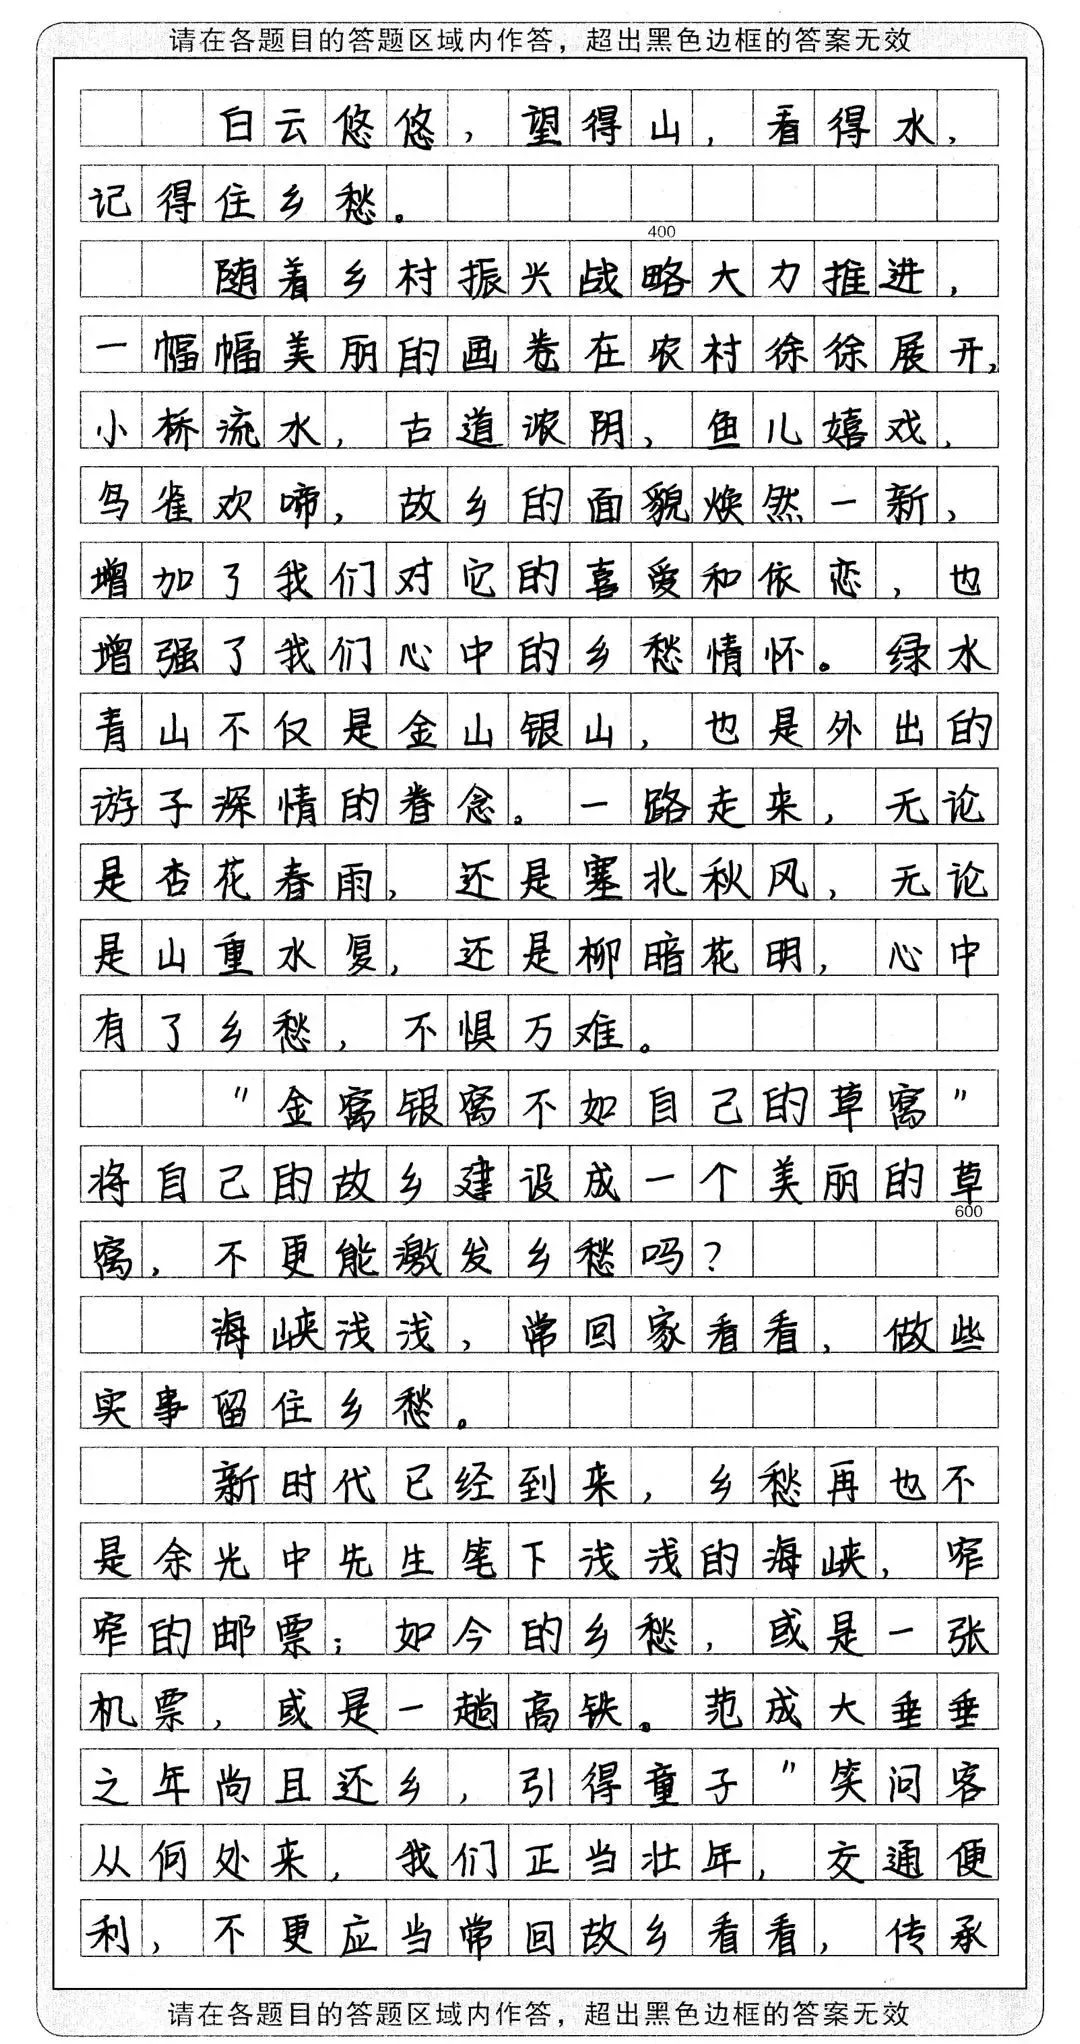 请在各题目的答题区域内作答，超出黑色边框的答案无效
白云悠悠，望得山，看得水，
记得住乡愁。
400
随着乡村振兴战略大力推进，
一幅幅美丽的画卷在农村徐徐展开，
小桥流水，古道浓阴，鱼儿嬉戏，
鸟雀欢啼，故乡的面貌焕然一新，
增加了我们对它的喜爱和依恋，也
增强了我们心中的乡愁情怀。绿水
青山不仅是金山银山，也是外出的
游子深情的眷念。一路走来，无论
是杏花春雨，还是塞北秋风，无论
是山重水复，还是柳暗花明，心中
有了乡愁，不惧万难。
"金窝银窝不如自己的草窝"
将自己的故乡建设成一个美丽的草
600
窝，不更能激发乡愁吗？
海峡浅浅，常回家看看，做些
实事留住乡愁。
新时代已经到来，乡愁再也不
是余光中先生笔下浅浅的海峡，窄
窄的邮票；如今的乡愁，或是一张
机票，或是一趟高铁。范成大垂垂
之年尚且还乡，引得童子"笑问客
从何处来，我们正当壮年，交通便
利，不更应当常回故乡看看，传承
请在各题目的答题区域内作答，超出黑色边框的答案无效